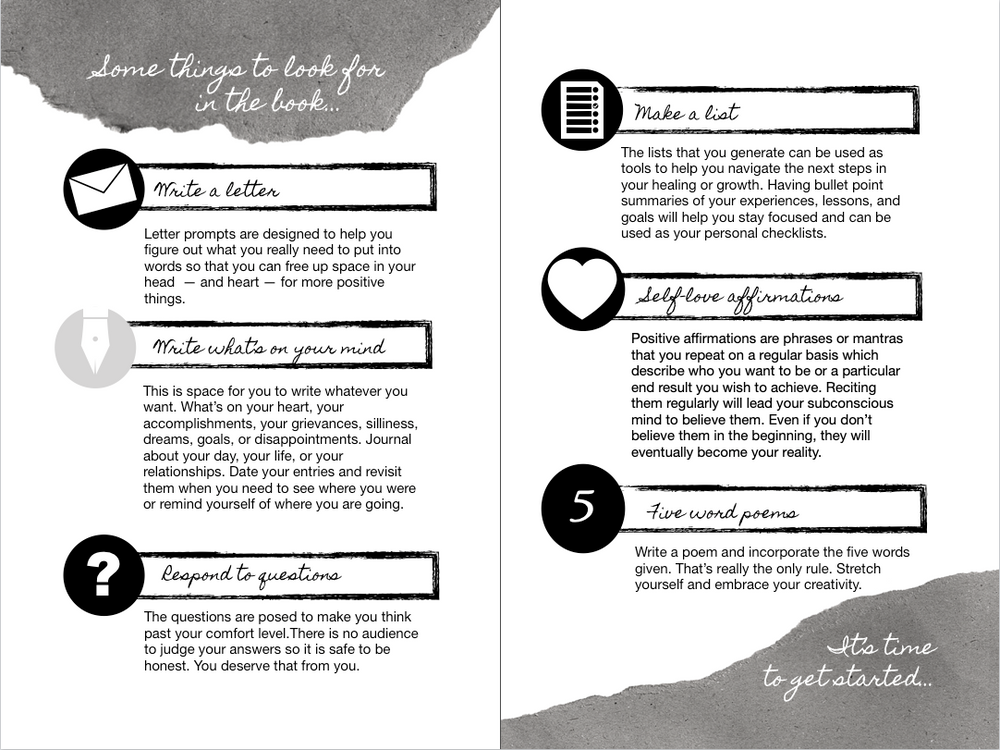 Some things to look for
in the book...
Write a letter
Letter prompts are designed to help you
figure out what you really need to put into
words so that you can free up space in your
head  — and heart — for more positive
things.
Write what's on your mind
This is space for you to write whatever you
want. What's on your heart, your
accomplishments, your grievances, silliness,
dreams, goals, or disappointments. Journal
about your day, your life, or your
relationships. Date your entries and revisit
them when you need to see where you were
or remind yourself of where you are going.
?
Respond to questions
The questions are posed to make you think
past your comfort level.There is no audience
to judge your answers so it is safe to be
honest. You deserve that from you.
Make a list
The lists that you generate can be used as
tools to help you navigate the next steps in
your healing or growth. Having bullet point
summaries of your experiences, lessons, and
goals will help you stay focused and can be
used as your personal checklists.
Self-love affirmations
Positive affirmations are phrases or mantras
that you repeat on a regular basis which
describe who you want to be or a particular
end result you wish to achieve. Reciting
them regularly will lead your subconscious
mind to believe them. Even if you don't
believe them in the beginning, they will
eventually become your reality.
5
Five word poems
Write a poem and incorporate the five words
given. That's really the only rule. Stretch
yourself and embrace your creativity.
It's time
to get started...